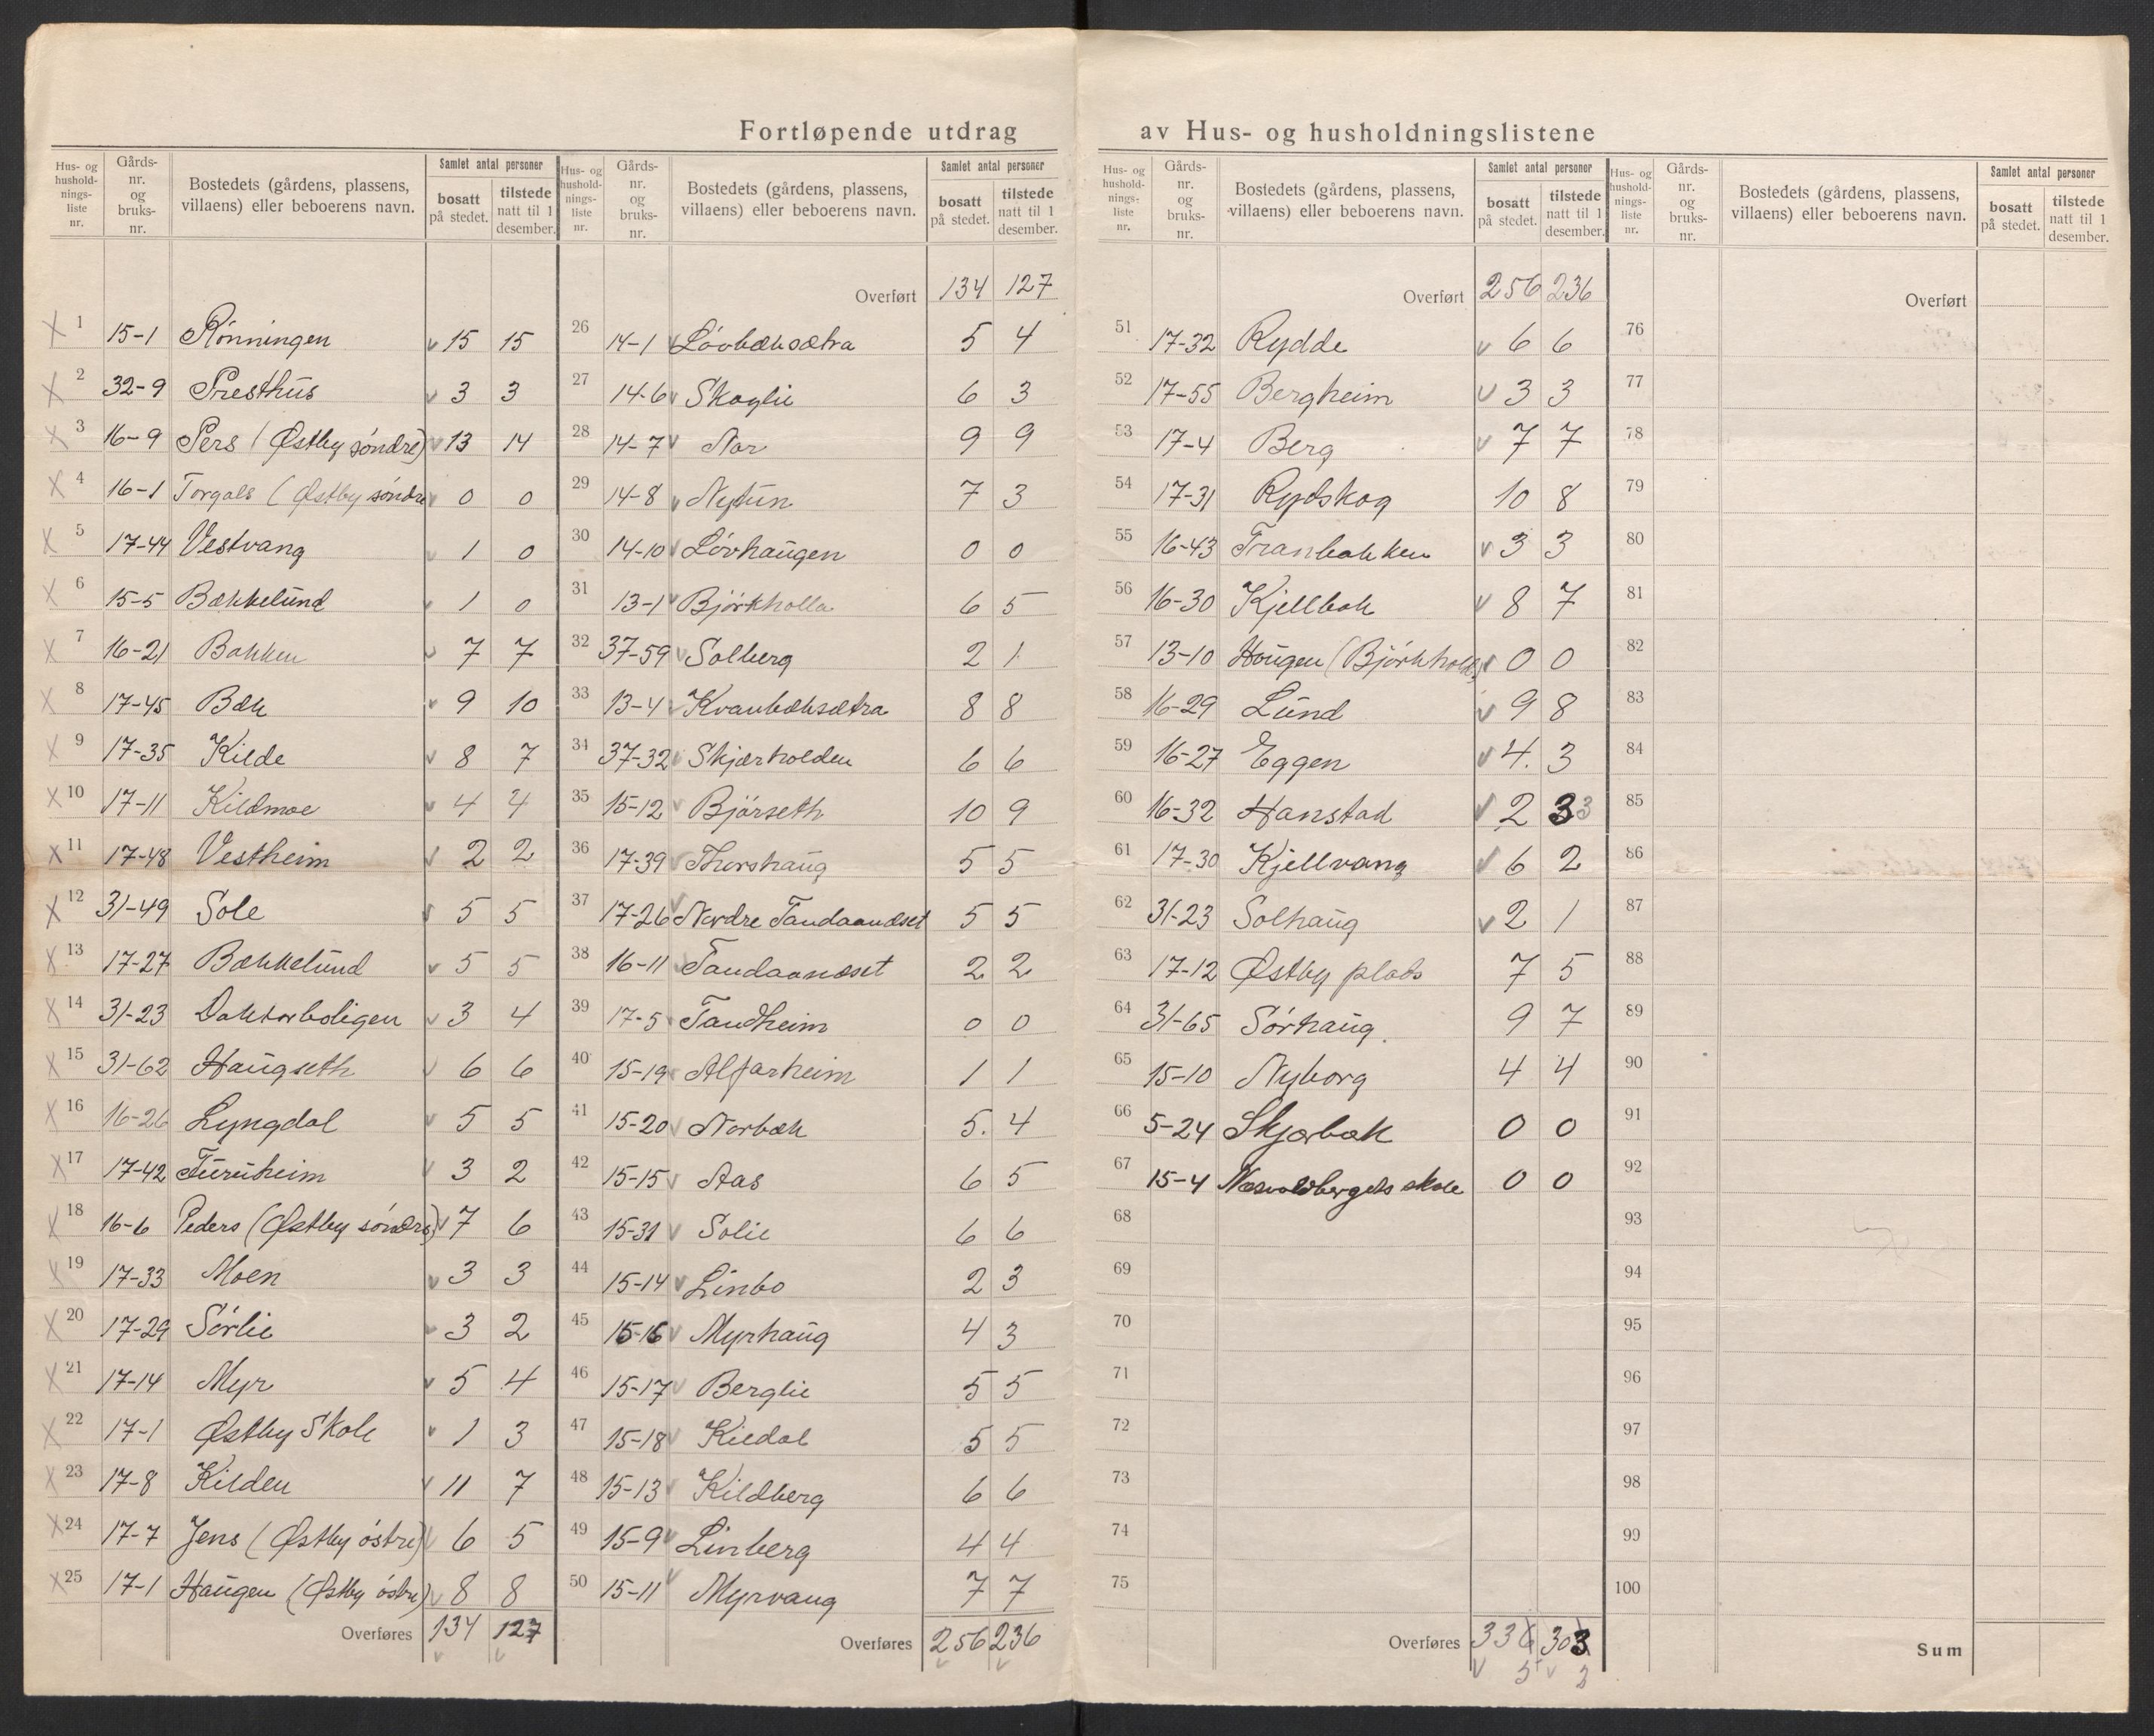 Fortløpende utdrag av Hus- og husholdningslistene
Hus- og hushold-nings-liste nr. Gårds-nr. og bruks-nr. Bostedets (gårdens, plassens, villaens) eller beboerens navn. Samlet antal personer bosatt på stedet. tilstede natt til 1 desember.
1 15-1 Rønningen 15 15
2 32-9 Presthus 3 3
3 16-9 Pers (Østby søndre) 13 14
4 16-1 Torgals (Østby søndre 0 0
5 17-44 Vestvang 1 0
6 15-5 Bækkelund 1 0
7 16-21 Bakken 7 7
8 17-45 Bæk 9 10
9 17-35 Kilde 8 7
10 17-11 Kildmoe 4 4
11 17-48 Vestheim 2 2
12 31-49 Sole 5 5
13 17-27 Bækkelund 5 5
14 31-23 Doktorboligen 3 4
15 31-62 Haugseth 6 6
16 16-26 Lyngdal 5 5
17 17-42 Furuheim 3 2
18 16-6 Peders (Østby søndre) 7 6
19 17-33 Moen 3 3
20 17-29 Sørlie 3 2
21 17-14 Myr 5 4
22 17-1 Østby Skole 1 3
23 17-8 Kilden 11 7
24 17-7 Jens (Østby østre) 6 5
25 17-1 Haugen (Østby østre) 8 8
Overføres 134 127
Hus- og hushold-nings-liste nr. Gårds-nr. og bruks-nr. Bostedets (gårdens, plassens, villaens) eller beboerens navn. Samlet antal personer bosatt på stedet. tilstede natt til 1 desember.
Overført 134 127
26 14-1 Løvbæksætra 5 4
27 14-6 Skoglie 6 3
28 14-7 Nor 9 9
29 14-8 Nytun 7 3
30 14-10 Løvhaugen 0 0
31 13-1 Bjørkholla 6 5
32 37-59 Solberg 2 1
33 13-4 Kvanbæksætra 8 8
34 37-32 Skjærholden 6 6
35 15-12 Bjørseth 10 9
36 17-39 Thorshaug 5 5
37 17-26 Nordre Tandaanæset 5 5
38 16-11 Tandaanæset 2 2
39 17-5 Tandheim 0 0
40 15-19 Alfarheim 1 1
41 15-20 Norbæk 5. 4
42 15-15 Aas 6 5
43 15-31 Solie 6 6
44 15-14 Linbo 2 3
45 15-16 Myrhaug 4 3
46 15-17 Berglie 5 5
47 15-18 Kildal 5 5
48 15-13 Kildberg 6 6
49 15-9 Linberg 4 4
50 15-11 Myrvang 7 7
Overføres 256 236
Hus- og hushold-nings-liste nr. Gårds-nr. og bruks-nr. Bostedets (gårdens, plassens, villaens) eller beboerens navn. Samlet antal personer bosatt på stedet. tilstede natt til 1 desember.
Overført 256 236
51 17-32 Rydde 6 6
52 17-55 Bergheim 3 3
53 17-4 Berg 7 7
54 17-31 Rydskog 10 8
55 16-43 Tranbakken 3 3
56 16-30 Kjellbæk 8 7
57 13-10 Haugen (Bjørkholla) 0 0
58 16-29 Lund 9 8
59 16-27 Eggen 4. 3
60 16-32 Hanstad 2 3 3
61 17-30 Kjellvang 6 2
62 31-23 Solhaug 2 1
63 17-12 Østby plads 7 5
64 31-65 Sørhaug. 9 7
65 15-10 Nyborg 4 4
66 5-24 Skjærbæk 0 0
67 15-4 Næsvoldbergets skole 0 0
68
69
70
71
72
73
74
75
Overføres 336 303
5 2
Hus- og hushold-nings-liste nr. Gårds-nr. og bruks-nr. Bostedets (gårdens, plassens, villaens) eller beboerens navn. Samlet antal personer bosatt på stedet. tilstede natt til 1 desember.
Overført
76
77
78
79
80
81
82
83
84
85
86
87
88
89
90
91
92
93
94
95
96
97
98
99
100
Sum